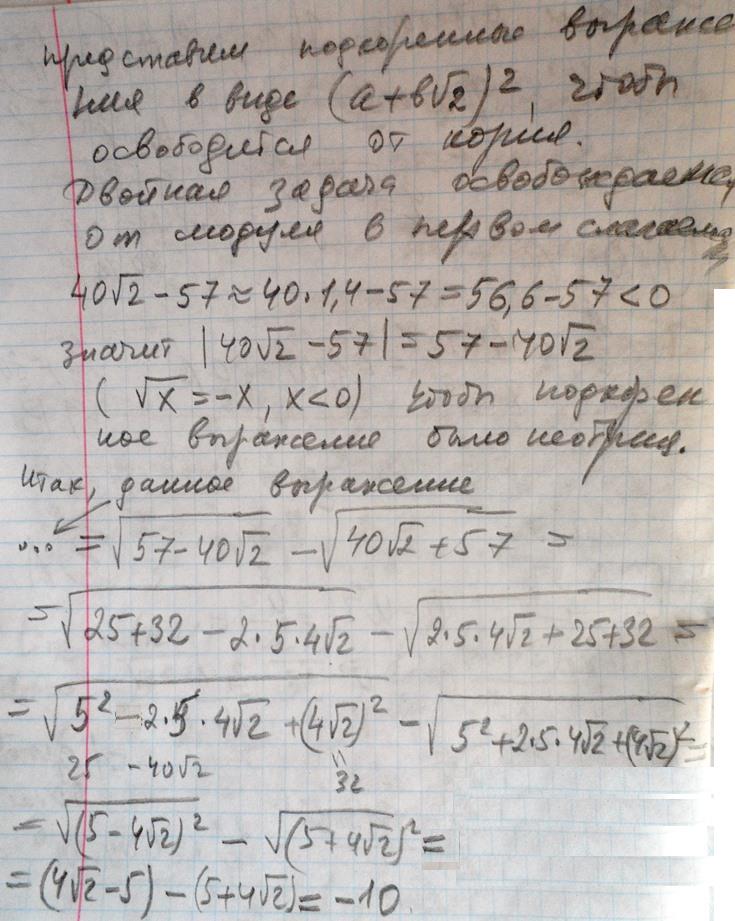 представим подкоренные выраже
ния в виде (a+b√2)², чтобы
освободится от корня.
Двойная задача освобождаемся
от модуля в первом слагаемо
40√2-57≈40·1,4-57=56,6-57<0
значит |40√2-57|=57-40√2
(√x=-x, x<0) чтобы подкорен
ное выражение было неотриц.
Итак, данное выражение
...=√(57-40√2) -√(40√2+57) =
=√(25+32-2·5·4√2) -√(2·5·4√2+25+32) =
=√(5²-2·5·4√2+(4√2)²) -√(5²+2·5·4√2+(4√2)²)=
25 -40√2 32
=√(5-4√2)² - √(5+4√2)²=
=(4√2-5)-(5+4√2)=-10.